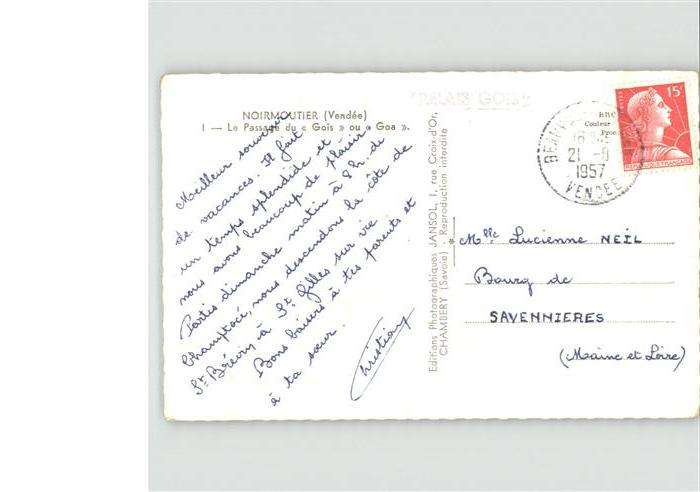 NOIRMOUTIER (Vendée)
1 — Le Passage du « Gois » ou « Goa ».
Meilleur souvenir
de vacances. Il fait
un temps splendide et
nous avons beaucoup de plaisir
Partis dimanche matin à 8 h. de
Champtocé, nous descendons la côte de
St Brévin à St Gilles sur vie
Bons baisers à tes parents et
à ta sœur.
Christian
Editions Photographiques JANSOL, 1, rue Croix-d'Or,
CHAMBERY (Savoie) - Reproduction interdite
RELAIS GOIS
15F
21
1957
VENDEE
Couleur
Mlle Lucienne NEIL
Bourg de
SAVENNIERES
(Maine et Loire)